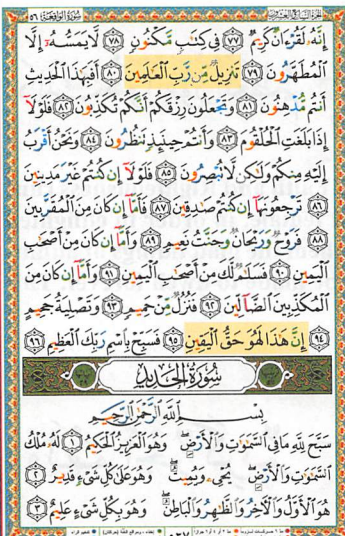 الجزء السابع والعشرون سورة الواقعة ٥٦
إِنَّهُۥ لَقُرْءَانٌ كَرِيمٌ ﴿٧٧﴾ فِى كِتَٰبٍ مَّكْنُونٍ ﴿٧٨﴾ لَّا يَمَسُّهُۥٓ إِلَّا
ٱلْمُطَهَّرُونَ ﴿٧٩﴾ تَنزِيلٌ مِّن رَّبِّ ٱلْعَٰلَمِينَ ﴿٨٠﴾ أَفَبِهَٰذَا ٱلْحَدِيثِ
أَنتُم مُّدْهِنُونَ ﴿٨١﴾ وَتَجْعَلُونَ رِزْقَكُمْ أَنَّكُمْ تُكَذِّبُونَ ﴿٨٢﴾ فَلَوْلَآ
إِذَا بَلَغَتِ ٱلْحُلْقُومَ ﴿٨٣﴾ وَأَنتُمْ حِينَئِذٍ تَنظُرُونَ ﴿٨٤﴾ وَنَحْنُ أَقْرَبُ
إِلَيْهِ مِنكُمْ وَلَٰكِن لَّا تُبْصِرُونَ ﴿٨٥﴾ فَلَوْلَآ إِن كُنتُمْ غَيْرَ مَدِينِينَ
﴿٨٦﴾ تَرْجِعُونَهَآ إِن كُنتُمْ صَٰدِقِينَ ﴿٨٧﴾ فَأَمَّآ إِن كَانَ مِنَ ٱلْمُقَرَّبِينَ
﴿٨٨﴾ فَرَوْحٌ وَرَيْحَانٌ وَجَنَّتُ نَعِيمٍ ﴿٨٩﴾ وَأَمَّآ إِن كَانَ مِنْ أَصْحَٰبِ
ٱلْيَمِينِ ﴿٩٠﴾ فَسَلَٰمٌ لَّكَ مِنْ أَصْحَٰبِ ٱلْيَمِينِ ﴿٩١﴾ وَأَمَّآ إِن كَانَ مِنَ
ٱلْمُكَذِّبِينَ ٱلضَّآلِّينَ ﴿٩٢﴾ فَنُزُلٌ مِّنْ حَمِيمٍ ﴿٩٣﴾ وَتَصْلِيَةُ جَحِيمٍ
﴿٩٤﴾ إِنَّ هَٰذَا لَهُوَ حَقُّ ٱلْيَقِينِ ﴿٩٥﴾ فَسَبِّحْ بِٱسْمِ رَبِّكَ ٱلْعَظِيمِ ﴿٩٦﴾
سُورَةُ الحَدِيدِ
بِسْمِ ٱللَّهِ ٱلرَّحْمَٰنِ ٱلرَّحِيمِ
سَبَّحَ لِلَّهِ مَا فِى ٱلسَّمَٰوَٰتِ وَٱلْأَرْضِ ۖ وَهُوَ ٱلْعَزِيزُ ٱلْحَكِيمُ ﴿١﴾ لَهُۥ مُلْكُ
ٱلسَّمَٰوَٰتِ وَٱلْأَرْضِ ۖ يُحْىِۦ وَيُمِيتُ ۖ وَهُوَ عَلَىٰ كُلِّ شَىْءٍ قَدِيرٌ ﴿٢﴾
هُوَ ٱلْأَوَّلُ وَٱلْءَاخِرُ وَٱلظَّٰهِرُ وَٱلْبَاطِنُ ۖ وَهُوَ بِكُلِّ شَىْءٍ عَلِيمٌ ﴿٣﴾